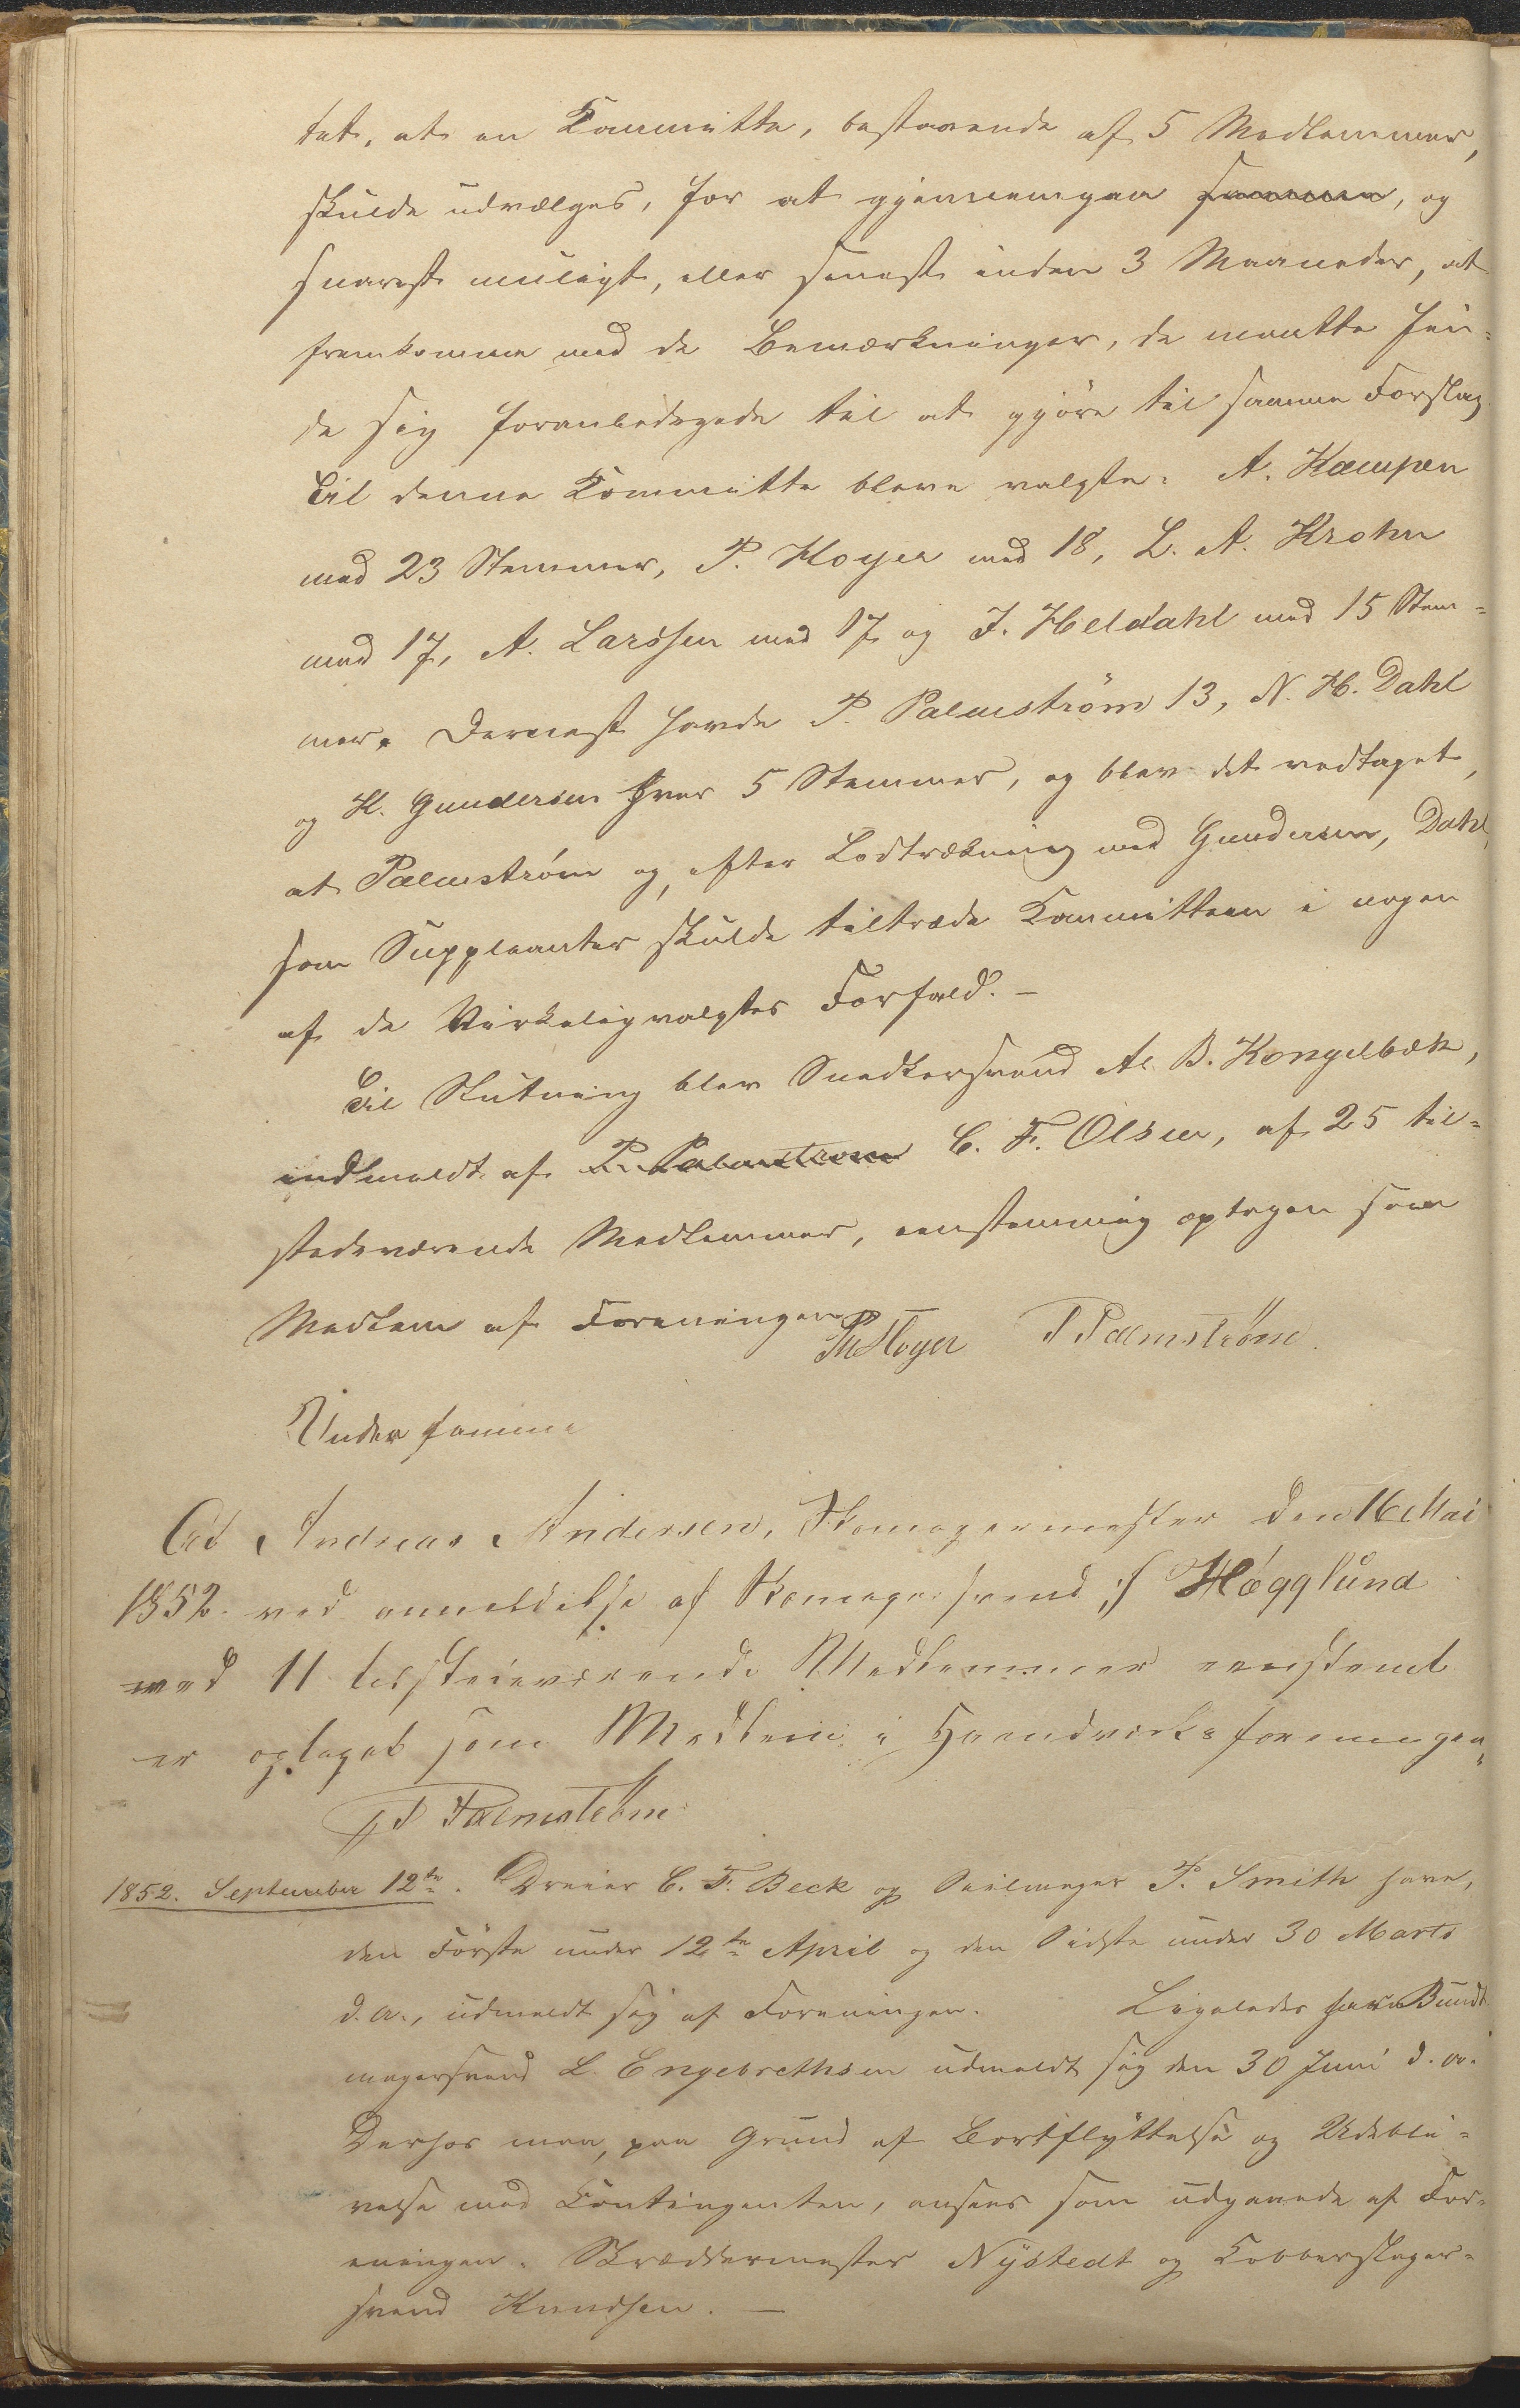 tet, at en Committe, bestaaende af 5 Medlemmer,
skulde udvælges, for at gjennemgaa samme, og
snarest muligt, eller senest inden 3 Maaneder, at
fremkomme med de Bemærkninger, de maatte fin-
de sig foranledigede til at gjöre til samme Forslag.
Til denne Committe bleve valgte: A. Kæmpen
med 23 Stemmer, P. Høyer med 18, L. A. Krohn
med 17, A. Larssen med 17 og J. Heldahl med 15 Stem-
mer. Dernæst havde P. Palmström 13, N. H. Dahl
og H. Gundersen hver 5 Stemmer, og blev det vedtaget,
at Palmström og, efter Lodtrækning med Gundersen, Dahl,
som Suppleanter skulde tiltræde Committeen i nogen
af de Virkeligvalgtes Forfald. –
Til Slutning blev Snedkersvend A. B. Kongelbæk,
indmeldt af P. Palmstrøm C. F. Olsen, af 25 til-
stedeværende Medlemmer, eenstemmig optagen som
Medlem af Foreningen
P Høyer P Palmström.
Under samme
At Andreas Andersen, Skomagermester den 16 Mai
1852. ved anmeldelse af Skomagersvend Hägglund
med 11 tilstedeværende Medlemmer eenstemt
er optaget som Medlem i Haandværksforeningen
P Palmström
1852. September 12te. Dreier C. F. Beck og Seilmager P. Smith have,
den Förste under 12te April og den Sidste under 30 Marts
d. A., udmeldt sig af Foreningen. Ligeledes har Bundt-
magersvend L. Engebrethsen udmeldt sig den 30 Juni d. A.
Derhos maa, paa Grund af Bortflyttelse og Udebli-
velse med Contingenten, ansees som udgaaede af For-
eningen: Skræddermester Nystedt og Kobberslager-
svend Knudsen. –